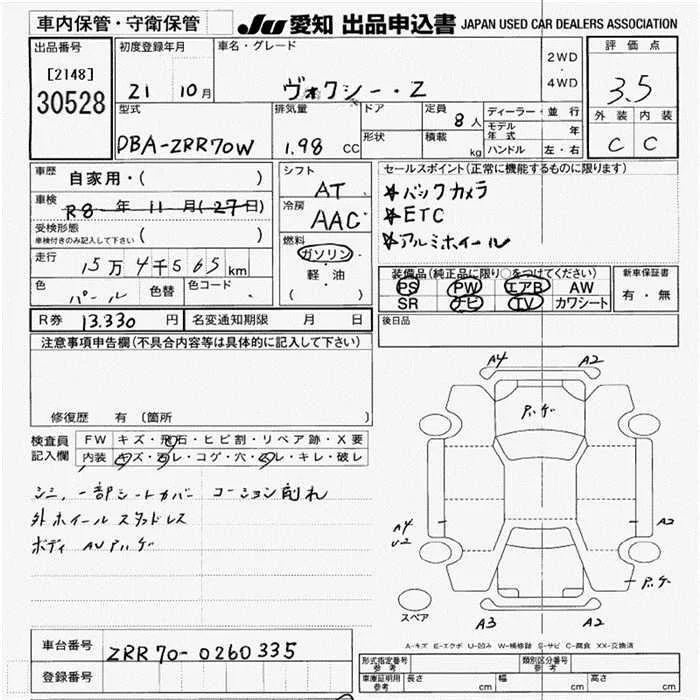 車内保管・守衛保管
JU 愛知 出品申込書 JAPAN USED CAR DEALERS ASSOCIATION
出品番号
[2148]
30528
初度登録年月
21 10月
車名・グレード
ヴォクシー・Z
2WD
・
4WD
評価点
3.5
外装 内装
C C
型式
DBA-ZRR70W
排気量
1.98 CC
ドア
形状
定員
8人
積載
kg
ディーラー・並行
モデル年式 年
ハンドル 左・右
車歴 自家用・( )
車検 R8 年 11 月(27日)
受検形態
車検付きのみ記入して下さい ( )
走行 15万4千565km
色 パール 色替 色コード
シフト
AT
冷房
AAC
燃料
ガソリン
・
軽・油
( )
セールスポイント(正常に機能するものに限ります)
★バックカメラ
★ETC
★アルミホイール
装備品(純正品に限り○をつけてください)
PS PW エアB AW
SR ナビ TV カワシート
新車保証書
有・無
R券 13.330 円 名変通知期限 月 日
後日品
注意事項申告欄(不具合内容等は具体的に記入して下さい)
修復歴 有 〔箇所 〕
検査員
記入欄
FW キズ・飛石・ヒビ割・リペア跡・X要
内装 キズ・汚レ・コゲ・穴・スレ・キレ・破レ
シミ、一部シートカバー コーション削れ
外ホイール スタッドレス
ボディ AUアハゲ
A4 A2
アハゲ
A4
U2
A2
アハゲ
スペア
A3 A2
A-キズ E-エクボ U-凹み W-補修跡 S-サビ C-腐食 XX-交換済
車台番号 ZRR70-0260335
登録番号
形式指定番号
参考
類別区分番号
参考
車庫証明用
参考
長さ cm 幅 cm 高さ cm